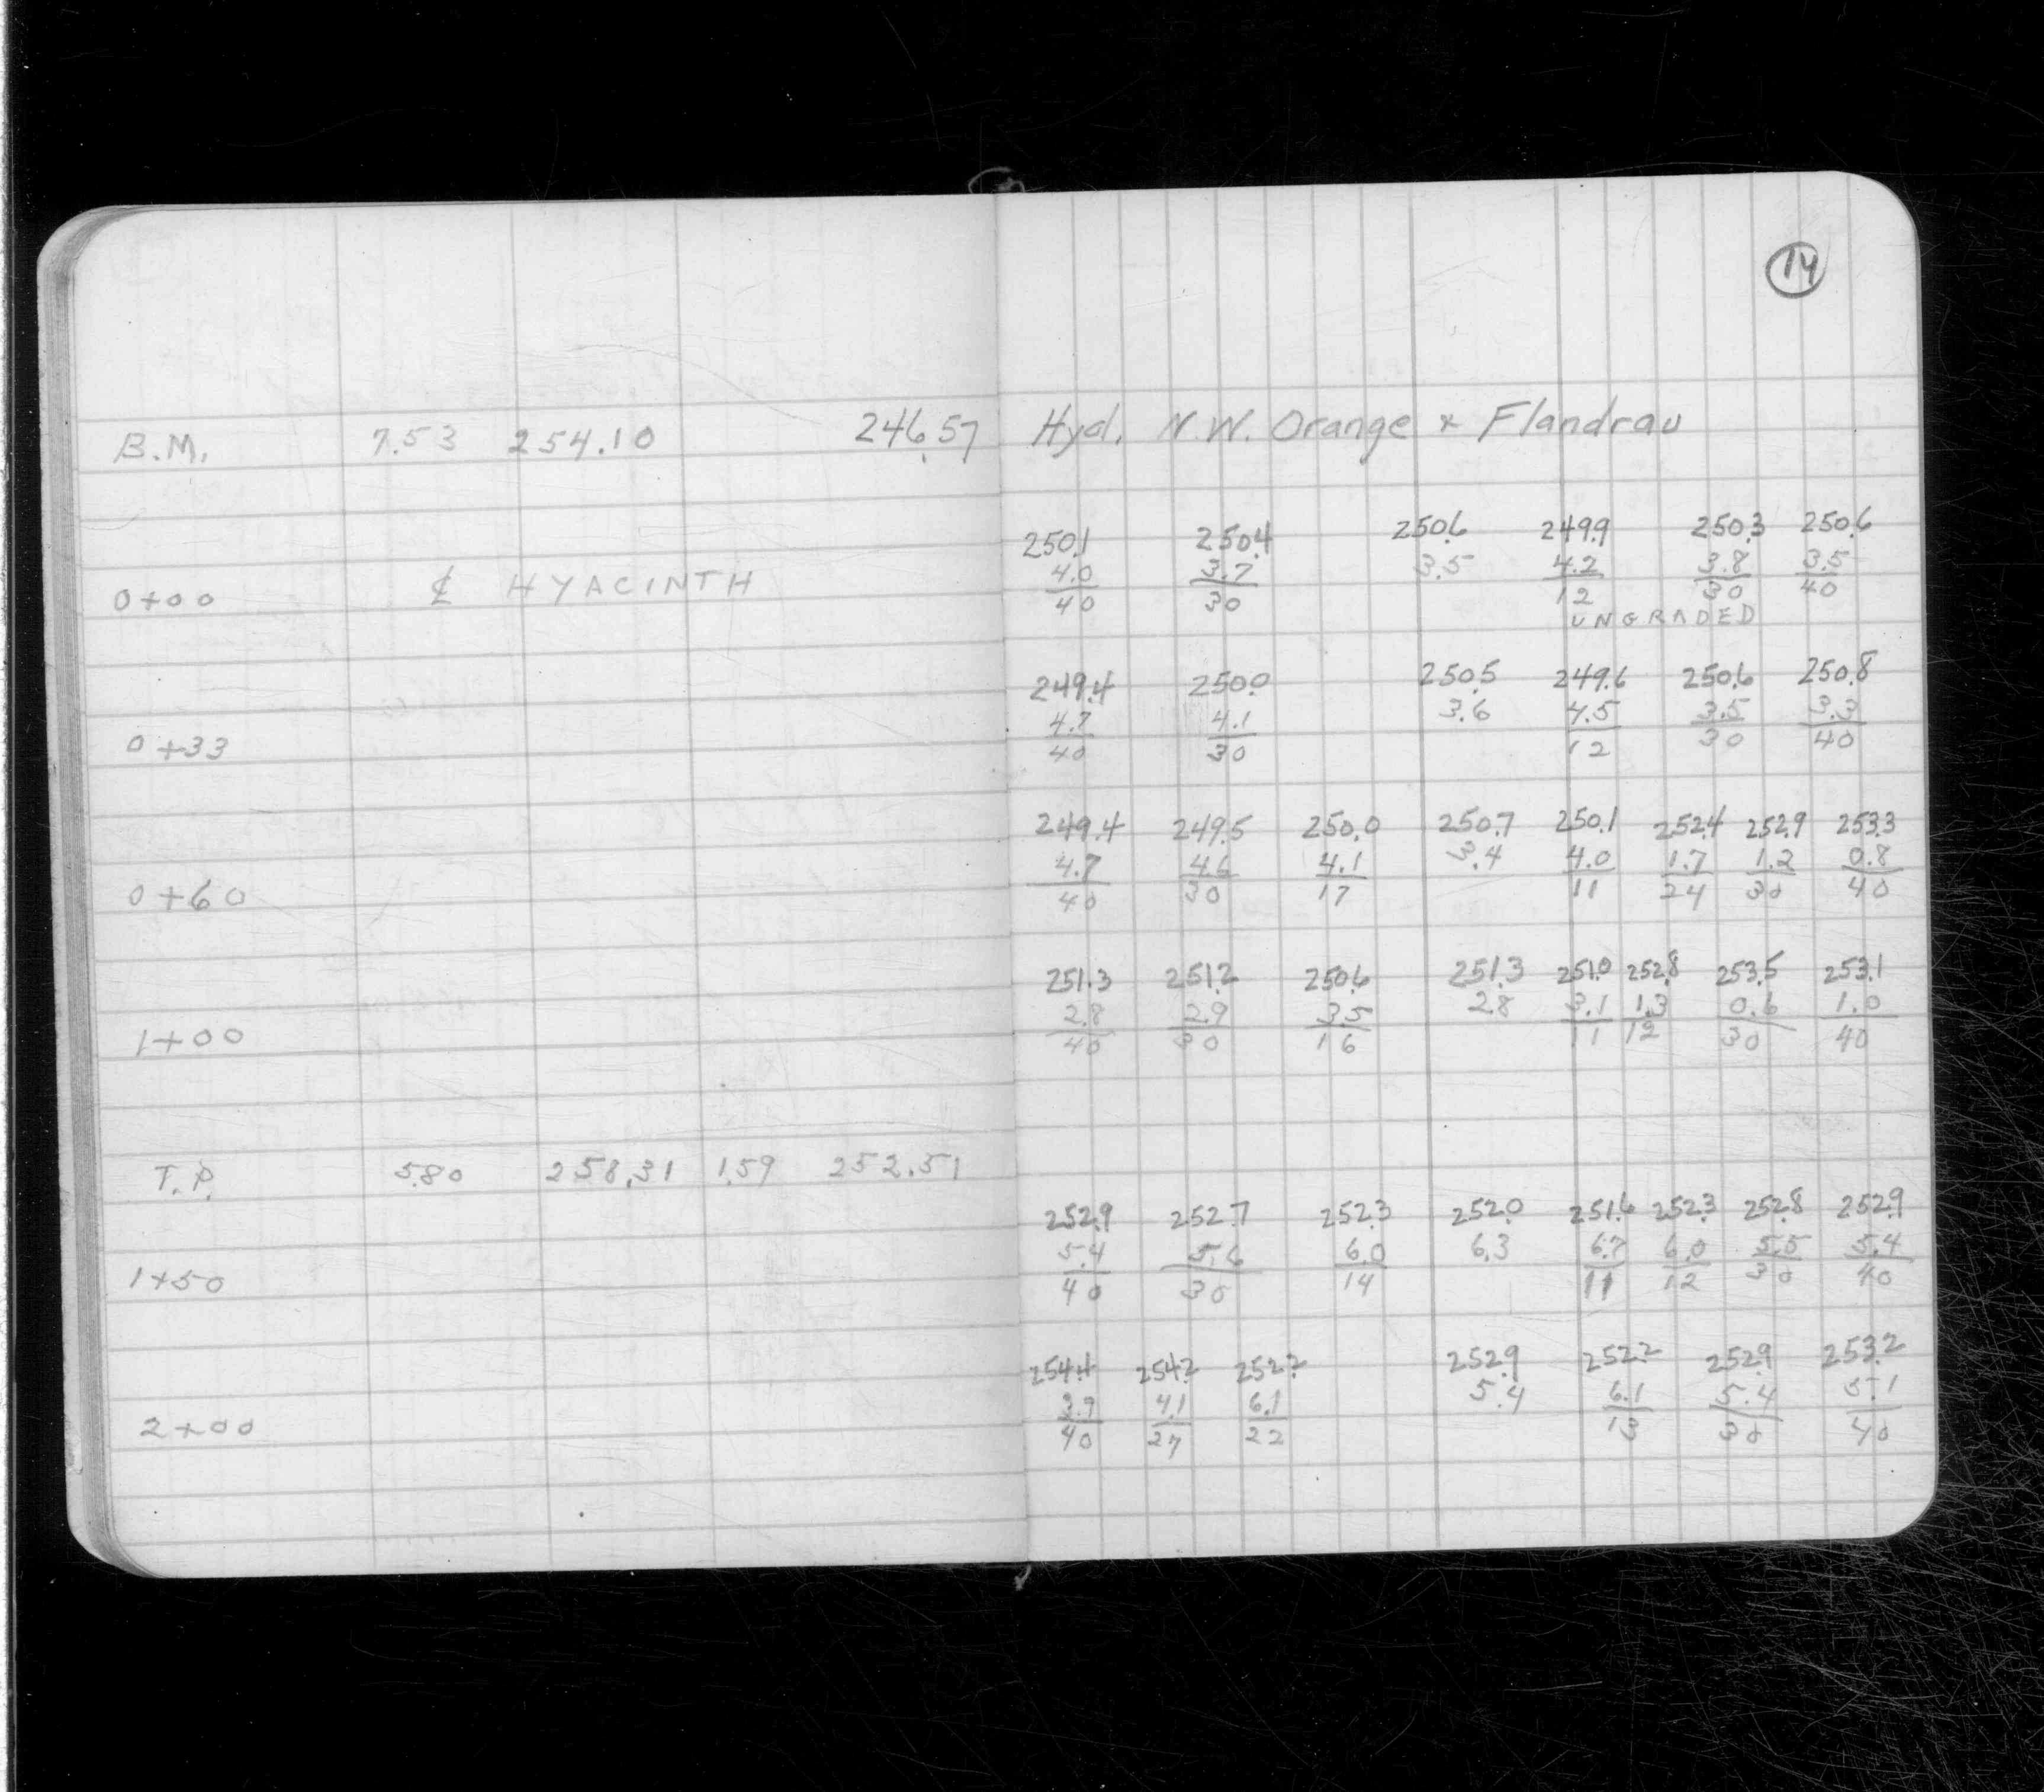 14
B.M. 7.53 254.10 246.57 Hyd. N.W. Orange x Flandrau
250.1 250.4 250.6 249.9 250.3 250.6
4.0 3.7 3.5 4.2 3.8 3.5
0+00 ₵ HYACINTH 40 30 12 30 40
UNGRADED
249.4 250.0 250.5 249.6 250.6 250.8
4.7 4.1 3.6 4.5 3.5 3.3
0+33 40 30 12 30 40
249.4 249.5 250.0 250.7 250.1 252.4 252.9 253.3
4.7 4.6 4.1 3.4 4.0 1.7 1.2 0.8
0+60 40 30 17 11 24 30 40
251.3 251.2 250.6 251.3 251.0 252.8 253.5 253.1
2.8 2.9 3.5 2.8 3.1 1.3 0.6 1.0
1+00 40 30 16 11 12 30 40
T.P. 5.80 258.31 1.59 252.51
252.9 252.7 252.3 252.0 251.6 252.3 252.8 252.9
5.4 5.6 6.0 6.3 6.7 6.0 5.5 5.4
1+50 40 30 14 11 12 30 40
254.4 254.2 252.2 252.9 252.2 252.9 253.2
3.9 4.1 6.1 5.4 6.1 5.4 5.1
2+00 40 27 22 13 30 40